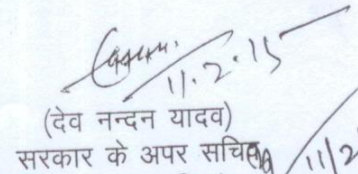 11.2.15
(देव नन्दन यादव)
सरकार के अपर सचिव
11/2